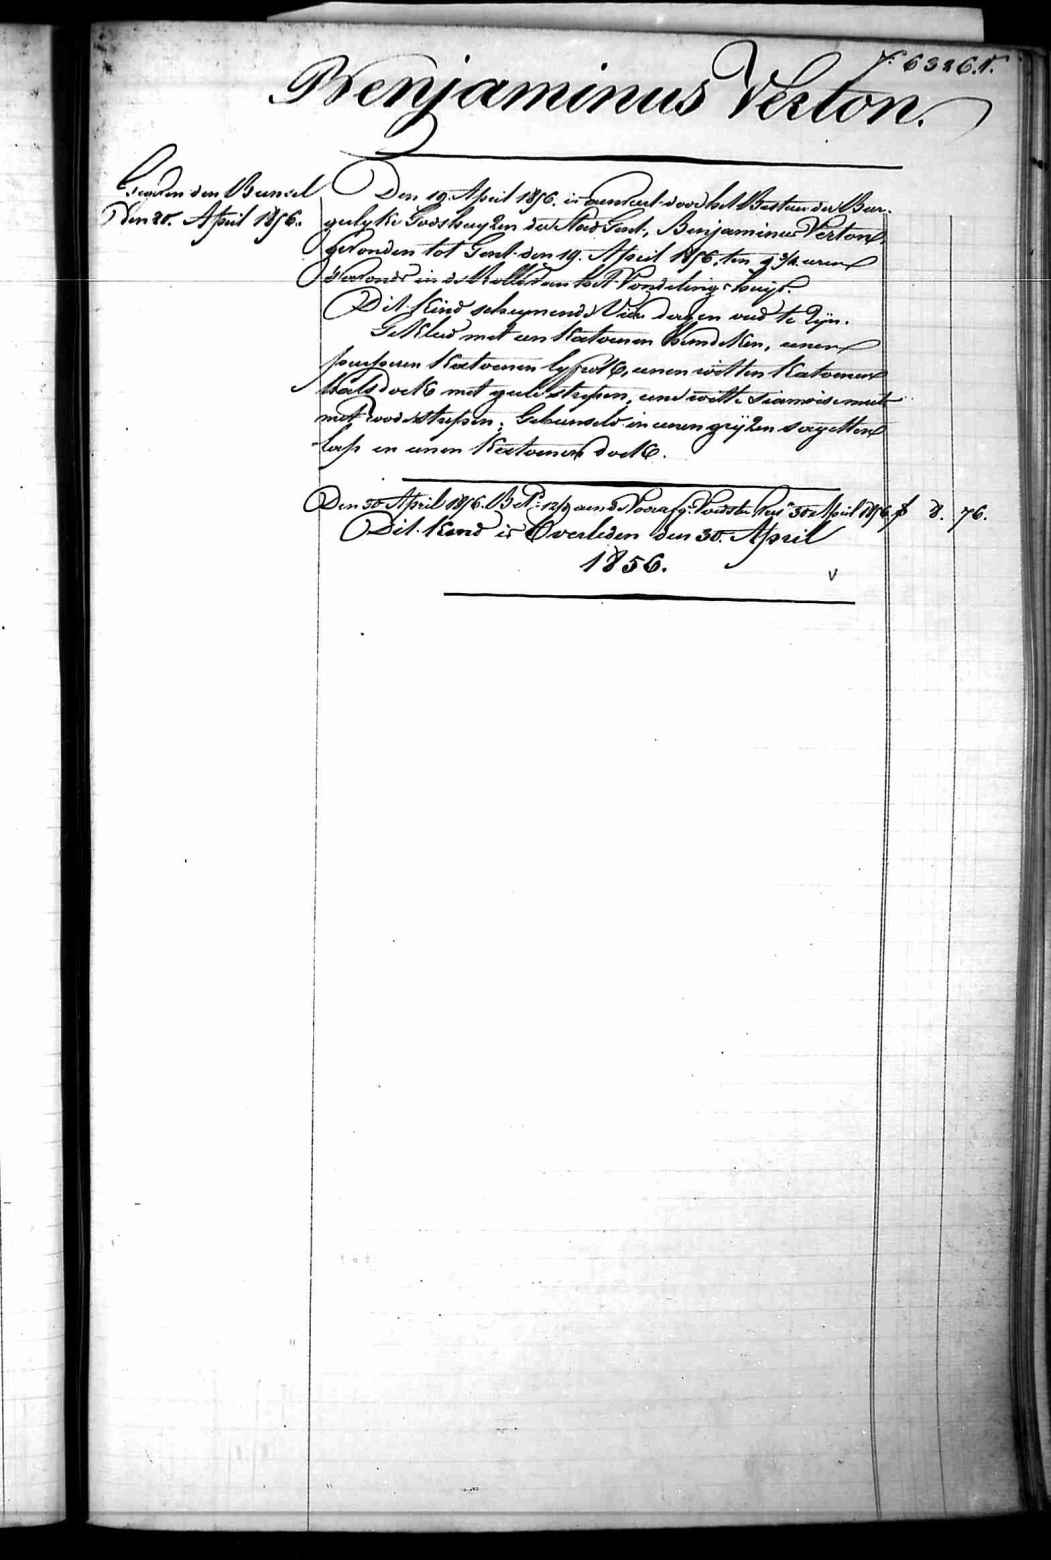 F. 6326. N.
Benjaminus Verton.
den Bunsel
Den 20. April 1856.
Den 19. April 1856. is aenveert door het Bestuer der Bur-
gelyke Godshuyzen der Stad Gent, Benjaminus Verton
gevonden tot Gent den 19. April 1856, ten 9 3/4 uren
s'avonds in de Rolle van het Vondelingshuys.
Dit Kind schynende Vier dagen oud te Zyn.
Gekleed met een Katoenen hemdeken, eenen
purperen Katoenen lyfrok, eenen witten Katoenen
halsdoek met geele strepen, eene witte siamoise muts
met roode strepen; Gebunseld in eenen gryzen sargetten
lap en eenen Katoenen doek.
Den 30 April 1856. Bet. 12/9 aen de Voorsz. Voedster tot 30 April 1856 f 8. 76.
Dit Kind is Overleden den 30. April
1856.
V